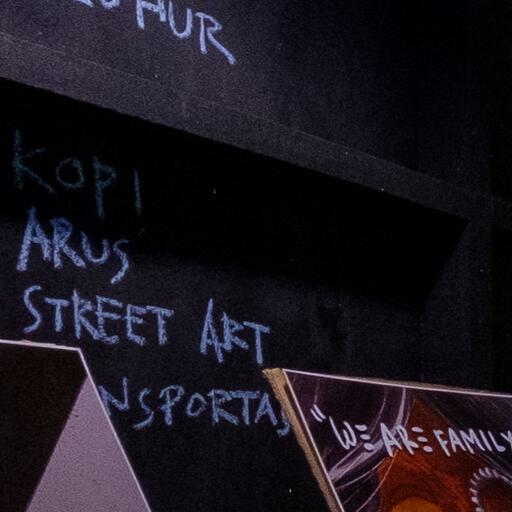 HUR
KOPI
ARUS
STREET ART
NSPORTAS
"WE ARE FAMILY